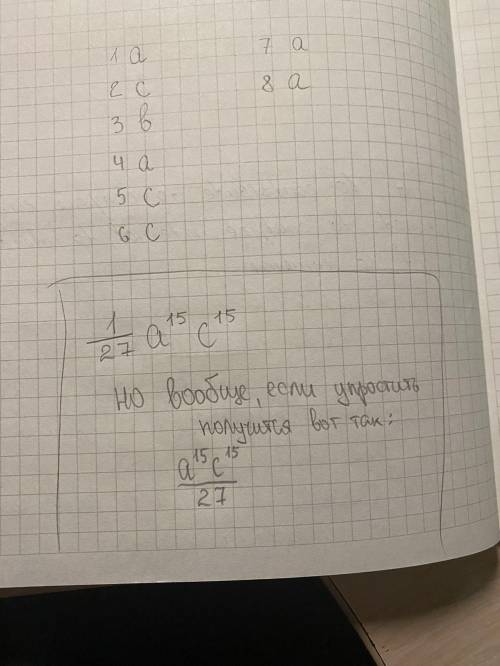 1 a
2 c
3 в
4 a
5 c
6 c
7 a
8 a
1/27 a¹⁵ c¹⁵
но вообще, если упростить
получится вот так:
a¹⁵c¹⁵/27